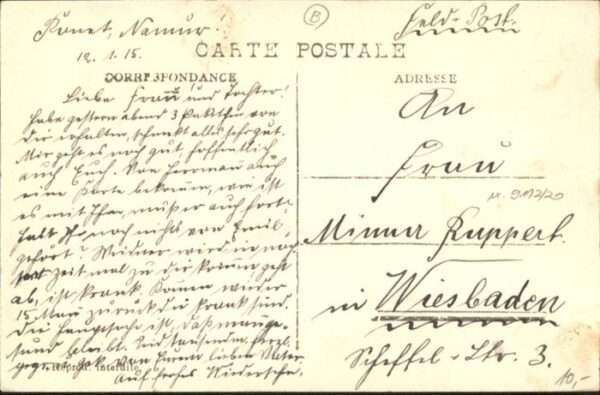 Namur!
12.1.15.
Feld-Post.
B
CARTE POSTALE
CORRESPONDANCE
ADRESSE
Liebe Frau und Tochter!
habe gestern abend 3 Paktchen von
dir erhalten, schmekt alles sehr gut.
Mir geht es noch gut hoffentlich
auch Euch. Von Herrman auch
eine Karte bekomm, wie ist
es mit Ihm, muß er auch fort,
habt Ihr noch nichts von Emil
gehört? Weidner wird in
Zeit mal zu dir komm geht
ab, ist krank komen wieder
15 Man zurück die krank sind.
die Hauptsache ist, daß man ge-
sund bleibt. Seid tausendm. herzl.
gegr. u. gek. Von Eurem lieben Vater.
Auf frohes Wiedersehn.
An
Frau
Minna Ruppert
in Wiesbaden
Scheffel-Str. 3.
10,-